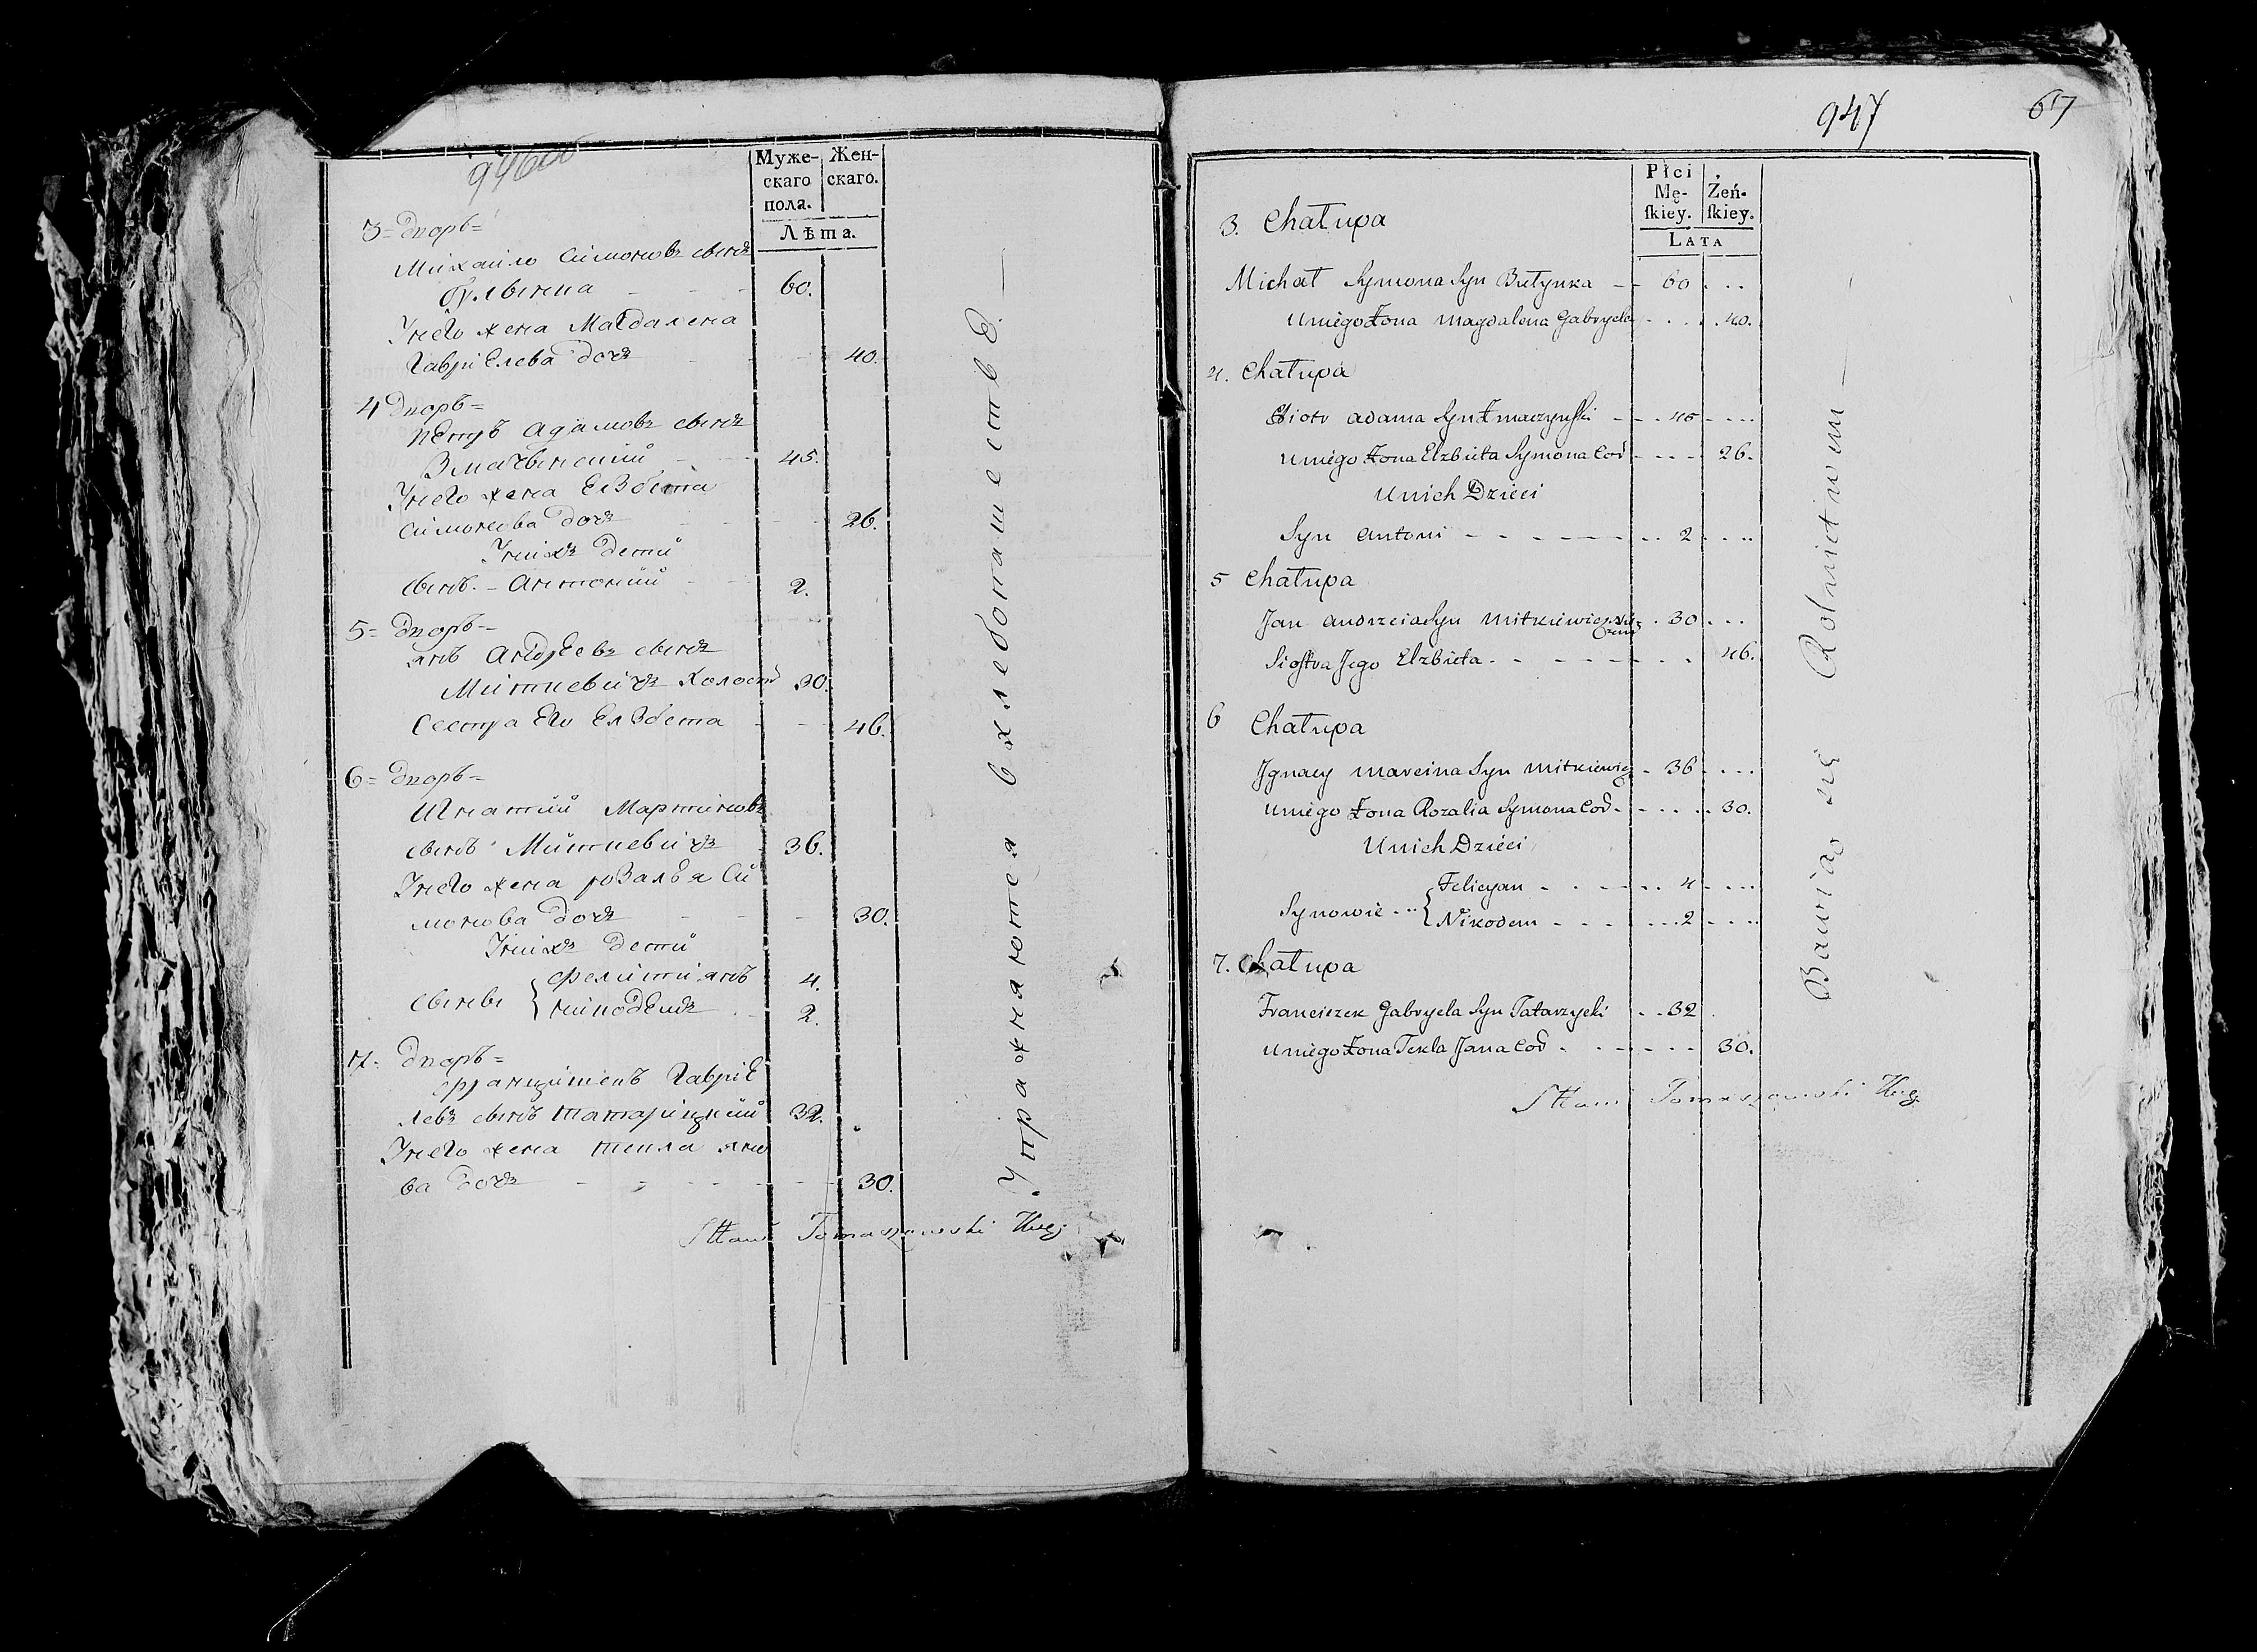 946об
Муже-
скаго
пола.
Жен-
скаго.
Лѣта.
3 = Дворъ =
Михайло Симоновъ сынъ
Булвына - - - 60.
У него жена Магдалена
Гавріелева дочь - - 40.
4 Дворъ =
Петръ Адамовъ сынъ
Змачынский - - 45.
У него жена Елзбета
Симонова дочь - - 26.
У нихъ дети
сынъ - Антоний - 2.
5 = Дворъ =
Янъ Андреевъ сынъ
Миткевичъ Холостъ 30.
Сестра Его Елзбета - - 46.
6 = Дворъ =
Игнатий Мартиновъ
сынъ Миткевичъ - 36.
У него жена Розалья Си
монова дочь - - - 30.
У нихъ дети
сыневе { Фелитиянъ 4.
Никодемъ - 2.
7 = Дворъ =
Францишекъ Гавріе
левъ сынъ Татарицкий 32.
У него жена Текла Яно
ва дочь - - - - - 30.
Упражняются в хлебопашестве. —
Tomaszewski
947
67
Płci
Mę-
ſkiey.
Żeń-
ſkiey.
LATA
3. Chałupa
Michał Symona Syn Bułynka - - 60 . . .
U niego Żona Magdalena Gabryela - . . . . 40.
4. Chałupa
Piotr Adama Syn Zmaczyński - - . . 45 - . . .
U niego Żona Elzbieta Symona Cod - - - 26.
U nich Dzieci
Syn Antoni - - - - - - - . . 2 . . . .
5 Chałupa
Jan Andrzeia Syn Mitkiewicz . 30 . . .
Siostra Jego Elzbieta. - - - - - - . . 46.
6 Chałupa
Jgnacy Marcina Syn Mitkiewicz - 36 . . . .
U niego Żona Rozalia Symona Cod - . - . . . 30.
U nich Dzieci
Synowie . .. { Felicyan - . . - - . . 4 - . . .
Nikodem - . . - . . . 2 . . . .
7. Chałupa
Franciszek Gabryela Syn Tatarzycki . . 32 .
U niego Żona Tekla Jana Cod . . - - - - . 30.
Bawiąc się Rolnictwem —
Tomaszewski